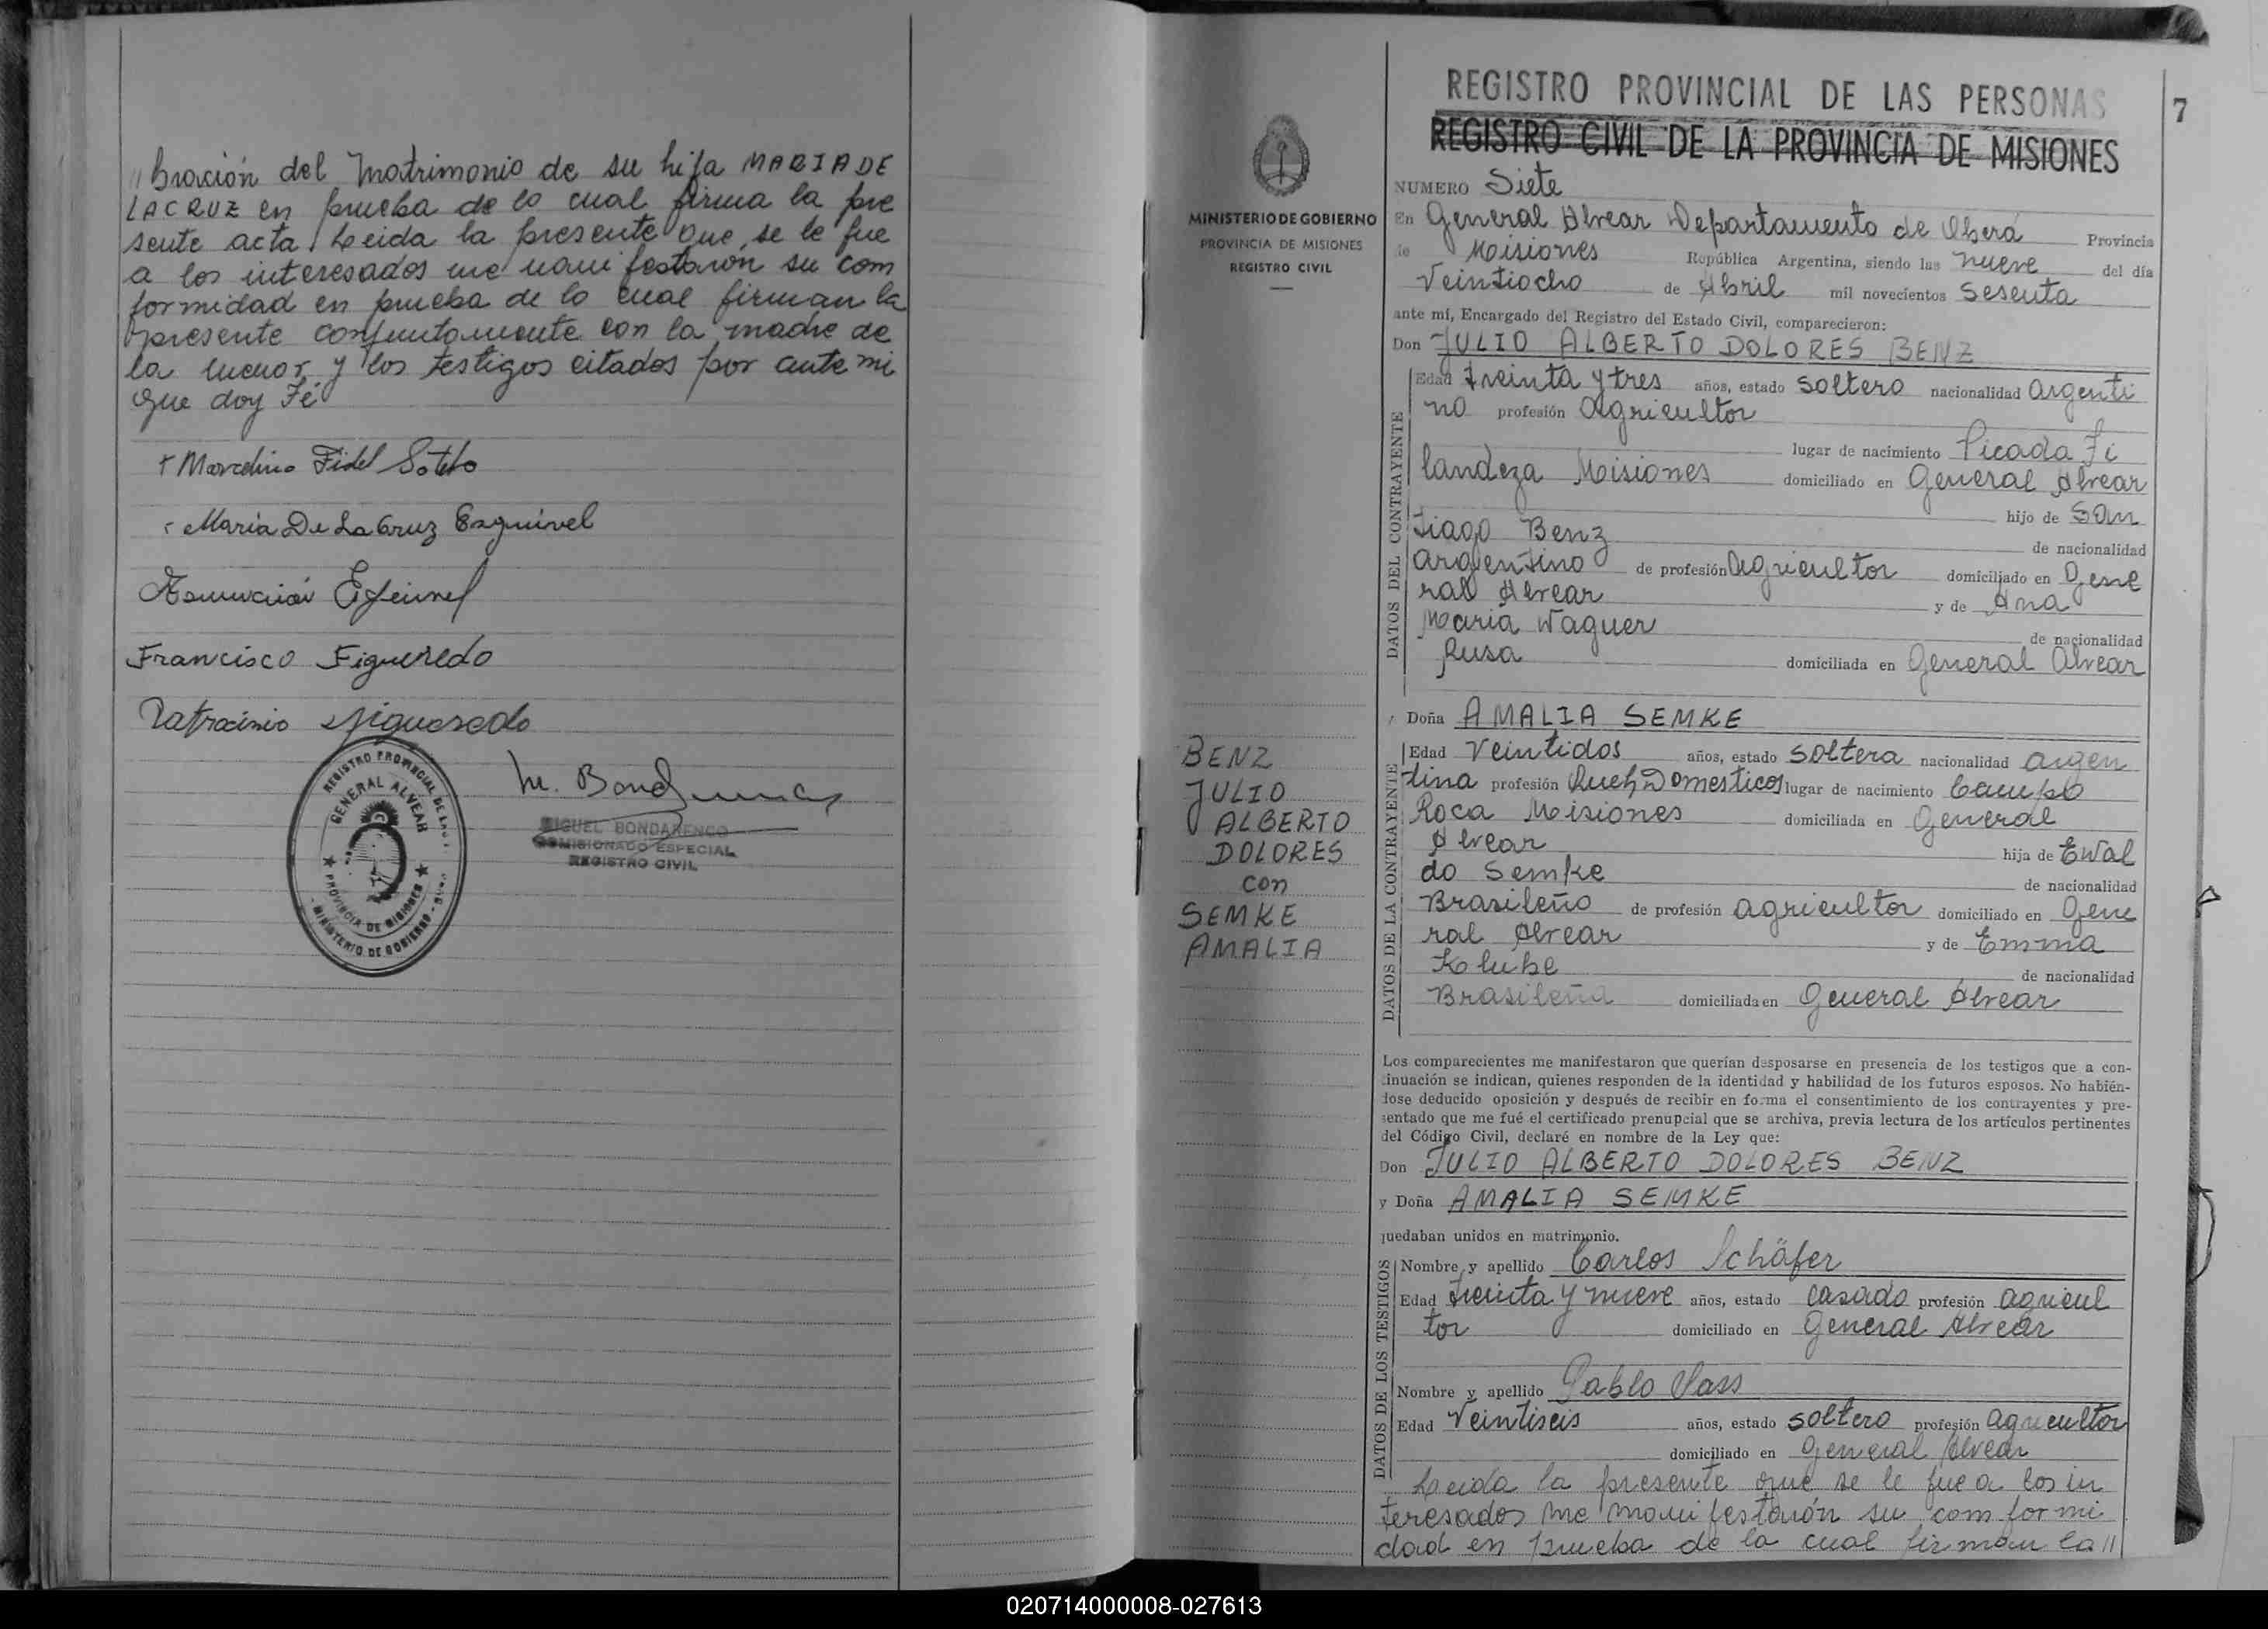 // bración del Matrimonio de su hija MARIA DE
LACRUZ en prueba de lo cual firma la pre
sente acta. Leida la presente que se le fue
a los interesados me manifestaron su com
formidad en prueba de lo cual firman la
presente conjuntamente con la madre de
la menor y los testigos citados por ante mi
que doy Fé
Marcelino Fidel Sotelo
Maria De La Cruz Esquivel
Francisco Figueredo
Patrocinio Figueredo
REGISTRO PROVINCIAL DE LAS
GENERAL ALVEAR
PROVINCIA DE MISIONES
MINISTERIO DE GOBIERNO
MIGUEL BONDARENCO
COMISIONADO ESPECIAL
REGISTRO CIVIL
7
MINISTERIO DE GOBIERNO
PROVINCIA DE MISIONES
REGISTRO CIVIL
BENZ
JULIO
ALBERTO
DOLORES
con
SEMKE
AMALIA
REGISTRO PROVINCIAL DE LAS PERSONAS
REGISTRO CIVIL DE LA PROVINCIA DE MISIONES
NUMERO Siete
En General Alvear Departamento de Oberá Provincia
de Misiones República Argentina, siendo las nueve del día
Veintiocho de Abril mil novecientos sesenta
ante mí, Encargado del Registro del Estado Civil, comparecieron:
Don JULIO ALBERTO DOLORES BENZ
DATOS DEL CONTRAYENTE
Edad treinta y tres años, estado soltero nacionalidad argenti
no profesión agricultor
lugar de nacimiento Picada Fi
landeza Misiones domiciliado en General Alvear
hijo de San
tiago Benz
de nacionalidad
argentino de profesión agricultor domiciliado en Gene
ral Alvear y de Ana
Maria Wagner
de nacionalidad
Rusa domiciliada en General Alvear
Doña AMALIA SEMKE
DATOS DE LA CONTRAYENTE
Edad Veintidos años, estado soltera nacionalidad argen
tina profesión Queh. Domesticos lugar de nacimiento Campo
Roca Misiones domiciliada en General
Alvear hija de Ewal
do Semke
de nacionalidad
Brasileño de profesión agricultor domiciliado en Gene
ral Alvear y de Emma
de nacionalidad
Brasileña domiciliada en General Alvear
Los comparecientes me manifestaron que querían desposarse en presencia de los testigos que a con-
tinuación se indican, quienes responden de la identidad y habilidad de los futuros esposos. No habién-
dose deducido oposición y después de recibir en forma el consentimiento de los contrayentes y pre-
sentado que me fué el certificado prenupcial que se archiva, previa lectura de los artículos pertinentes
del Código Civil, declaré en nombre de la Ley que:
Don JULIO ALBERTO DOLORES BENZ
y Doña AMALIA SEMKE
quedaban unidos en matrimonio.
DATOS DE LOS TESTIGOS
Nombre y apellido Carlos Schäfer
Edad treinta y nueve años, estado casado profesión agricul
tor domiciliado en General Alvear
Nombre y apellido Pablo
Edad Veintiseis años, estado soltero profesión agricultor
domiciliado en General Alvear
Leida la presente que se le fue a los in
teresados me manifestarón su com formi
dad en prueba de la cual firman la //
020714000008-027613